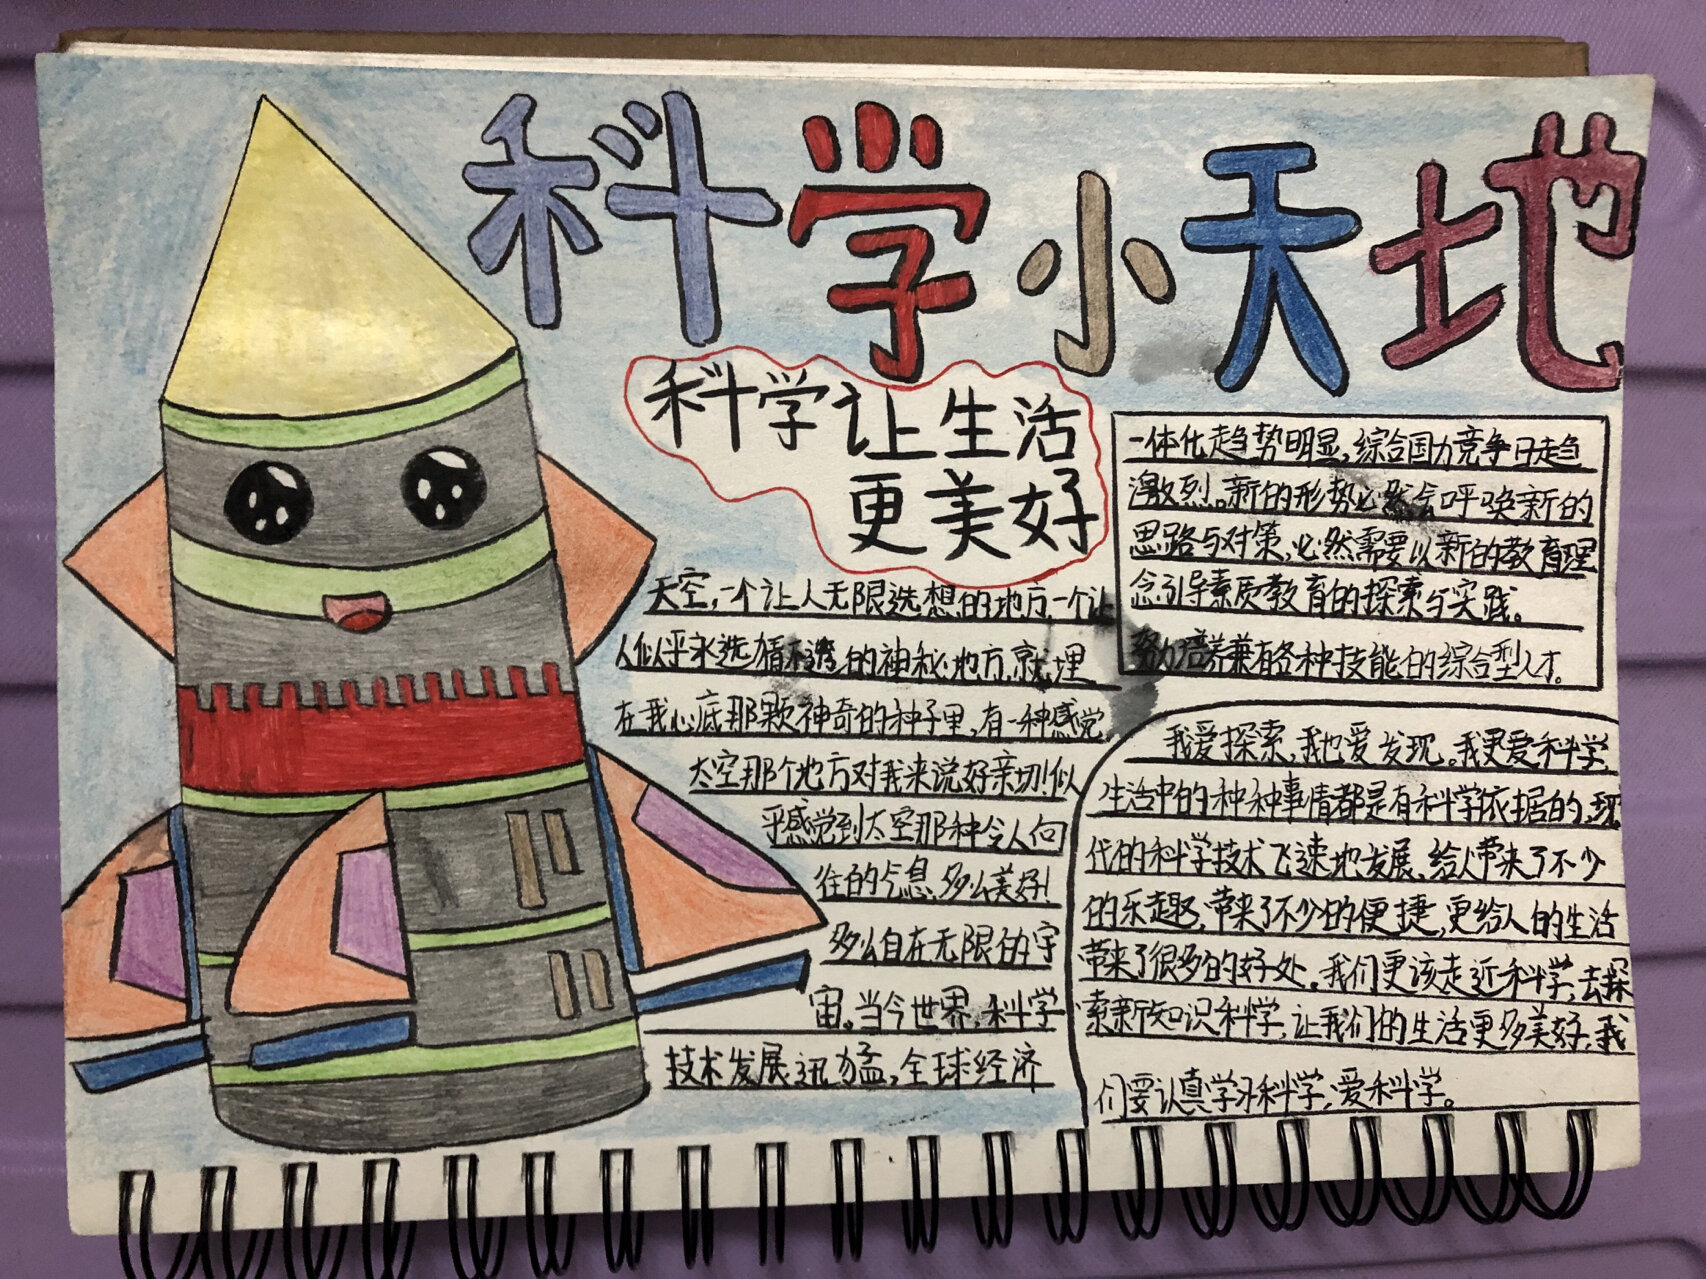 科学小天地
科学让生活
更美好
天空,一个让人无限遐想的地方,一个让
人似乎永远循不透的神秘地方,就埋
在我心底那颗神奇的种子里,有一种感觉,
太空那个地方对我来说好亲切!似
乎感觉到太空那种令人向
往的气息,多么美好!
多么自在无限的宇
宙。当今世界,科学
技术发展迅猛,全球经济
一体化趋势明显,综合国力竞争日趋
激烈。新的形势必然会呼唤新的
思路与对策,必然需要以新的教育理
念引导素质教育的探索与实践。
努力培养兼有各种技能的综合型人才。
我爱探索,我也爱发现。我更爱科学,
生活中的种种事情都是有科学依据的,现
代的科学技术飞速地发展,给人带来了不少
的乐趣,带来了不少的便捷,更给人的生活
带来了很多的好处。我们更该走近科学,去探
索新知识科学,让我们的生活更多美好,我
们要认真学习科学,爱科学。